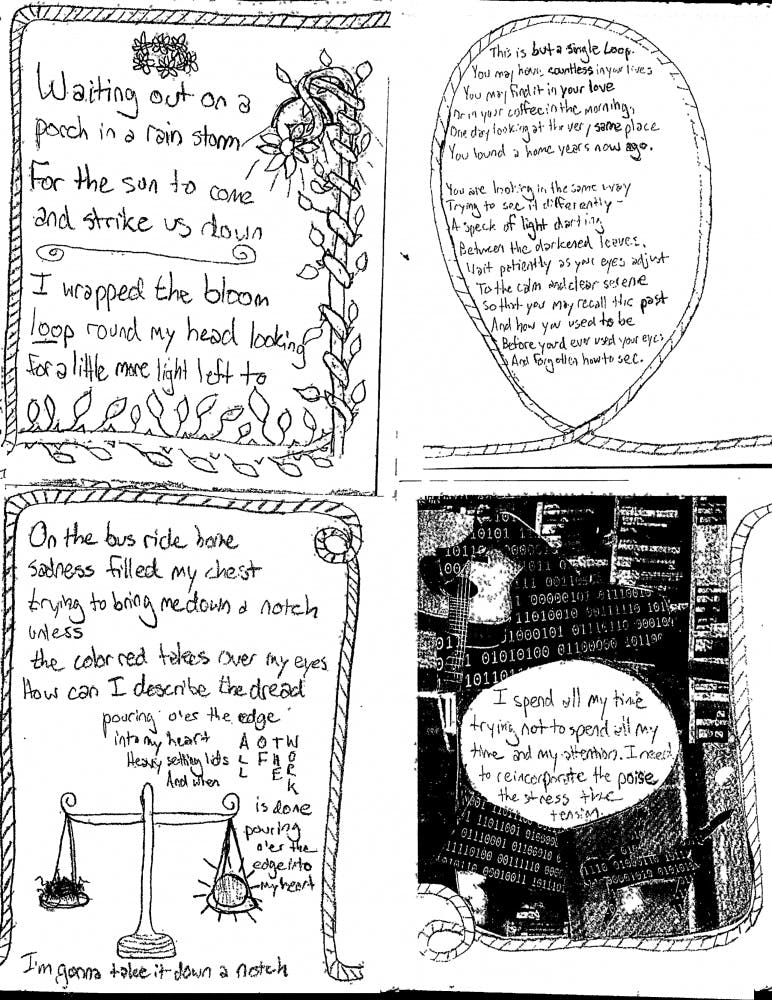 Waiting out on a
porch in a rain storm
For the sun to come
and strike us down
I wrapped the bloom
loop round my head looking
for a little more light left to
This is but a single Loop.
You may have countless in your lives
You may find it in your love
Or in your coffee in the morning,
One day looking at the very same place
You found a home years now ago.
You are looking in the same way
Trying to see it differently -
A speck of light darting
Between the darkened leaves.
Wait patiently as your eyes adjust
To the calm and clear serene
So that you may recall the past
And how you used to be
Before you'd ever used your eyes
And forgotten how to see.
On the bus ride home
sadness filled my chest
trying to bring me down a notch
unless
the color red takes over my eyes
How can I describe the dread
pouring o'er the edge
into my heart
Heavy setting lids
And when
ALL
OF
THE
WORK
is done
pouring
o'er the
edge into
my heart
I'm gonna take it down a notch
I spend all my time
trying not to spend all my
time and my attention. I need
to reincorporate the poise
the stress the
tension.